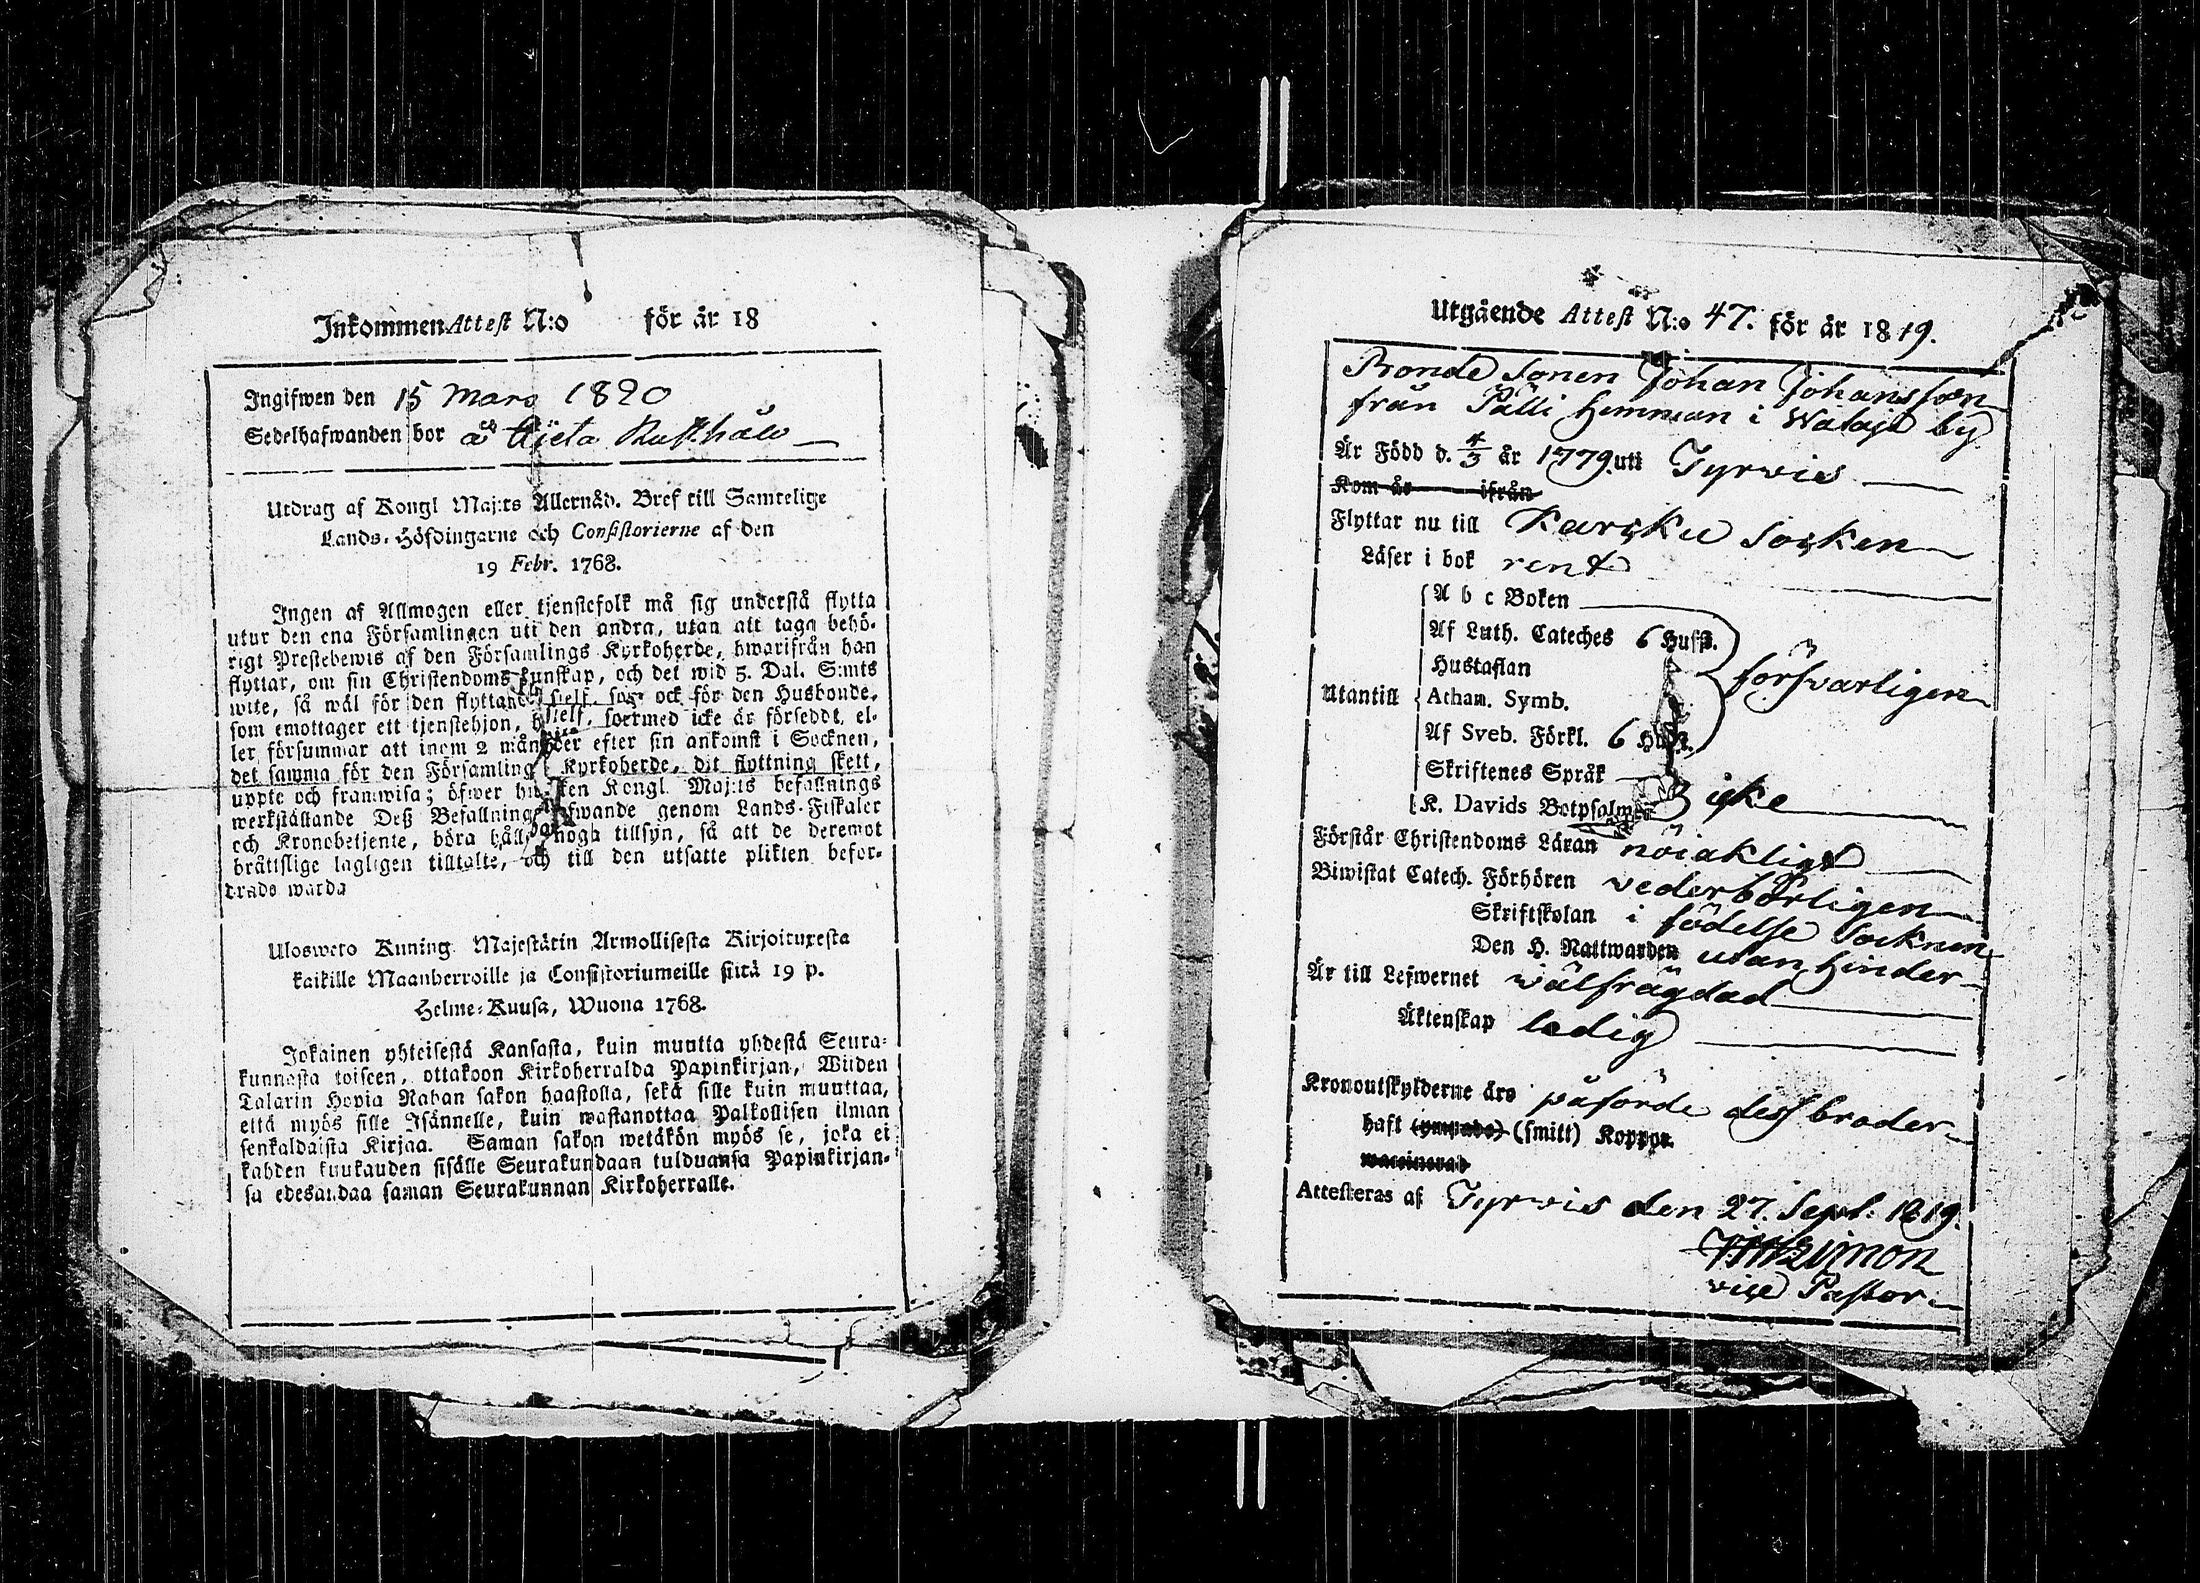 Inkommen Attest N:o för år 18
Ingifwen den 15 Mars 1820
Sedelhafwanden bor å Äjeta Rusthåll
Utdrag af Kongl Maj:ts Allernåd. Bref till Samtelige
Lands-Höfdingarne och Consistorierne af den
19 Febr. 1768.
Ingen af Allmogen eller tjenstefolk må sig understå flytta
utur den ena Församlingen uti den andra, utan att taga behö-
rigt Prestebewis af den Församlings Kyrkoherde, hwarifrån han
flyttar, om sin Christendoms kunskap, och det wid 5. Dal. S:mts
wite, så wäl för den flyttande sielf, som ock för den Husbonde,
som emottager ett tjenstehjon, sielf, som dermed icke är förseddt, el-
ler försummar att inom 2 månader efter sin ankomst i Socknen,
det samma för den Församlings Kyrkoherde, dit flyttning skett,
uppte och framwisa; öfwer hwilken Kongl. Maj:ts befallnings
werkställande Deß Befallningshafwande genom Lands-Fiskaler
och Kronobetjente, böra hålla noga tillsyn, så att de deremot
bråttslige lagligen tilltalte, och till den utsatte plikten befor-
drade warda
Ulosweto Kuning. Majestätin Armollisesta Kirjoituxesta
kaikille Maanherroille ja Consistoriumeille siitä 19 p.
Helme-Kuusa, Wuona 1768.
Jokainen yhteisestä Kansasta, kuin muutta yhdestä Seura-
kunnasta toiseen, ottakoon Kirkoherralda Papinkirjan, Wiiden
Talarin Hopia Rahan sakon haastolla, sekä sille kuin muuttaa,
että myös sille Isännelle, kuin wastanottaa Palkollisen ilman
senkaldaista Kirjaa. Saman sakon wetäkön myös se, joka ei
kahden kuukauden sisälle Seurakundaan tulduansa Papinkirjan-
sa edesandaa saman Seurakunnan Kirkoherralle.
Utgående Attest N:o 47. för år 1819.
Bonde Sonen Johan Johansson
från Pälli Hemman i Wataja by
Är Född d. 4/3 år 1779. uti Tyrvis
Kom år ifrån
Flyttar nu till Karcku Socken
Läser i bok rent
A b c Boken
Af Luth. Cateches 6 Hufß.
Hustaflan
försvarligen
Utantill Atham. Symb.
Af Sveb. Förkl. 6 Hufß.
Skriftenes Språk
K. Davids Botpsalmer icke
Förstår Christendoms Läran nöiakligt
Biwistat Catech. Förhören vederbörligen
Skriftskolan i födelse Socknen
Den H. Nattwarden utan hinder
Är till Lefwernet wälfrägdad
Äktenskap ledig
Kronoutskylderne äro påförde dess broder
haft (ympade) (smitt) Koppor.
waccinerad
Attesteras af Tyrvis den 27. Sept. 1819.
Simon
vice Pastor